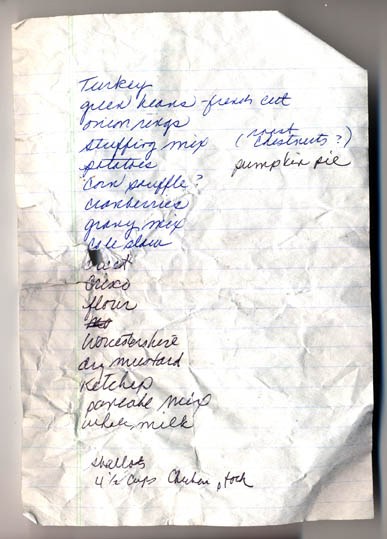 Turkey
green beans - french cut
onion rings
stuffing mix (roast chestnuts?)
potatoes pumpkin pie
corn souffle?
cranberries
gravy mix
cole slaw
Crisco
flour
Worcestershire
dry mustard
Ketchup
pancake mix
whole milk
shallots
4 1/2 cups Chicken stock